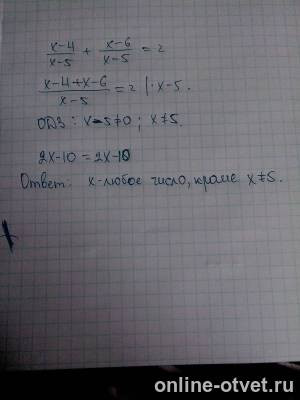 x-4/x-5 + x-6/x-5 = 2
x-4+x-6/x-5 = 2 |·x-5.
ОДЗ: x-5≠0; x≠5.
2x-10=2x-10
Ответ: x-любое число, кроме x≠5.
online-otvet.ru